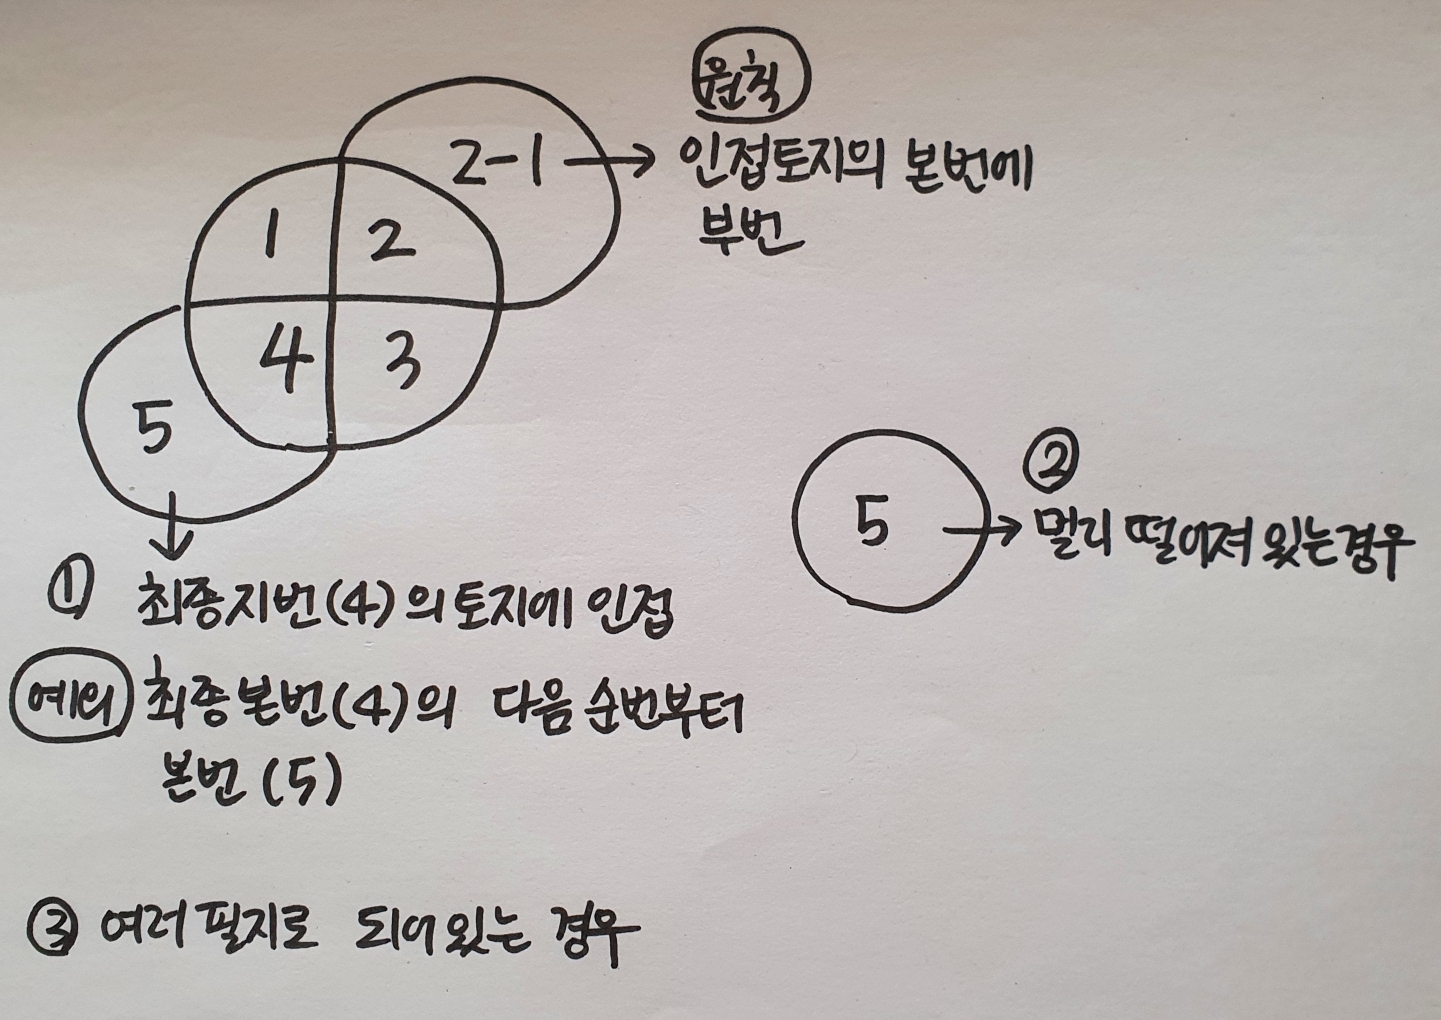 원칙
2-1 → 인접토지의 본번에
부번
1 2
4 3
5
5 → ② 멀리 떨어져 있는경우
① 최종지번(4)의토지에 인접
예외 최종본번(4)의 다음 순번부터
본번 (5)
③ 여러 필지로 되어있는 경우